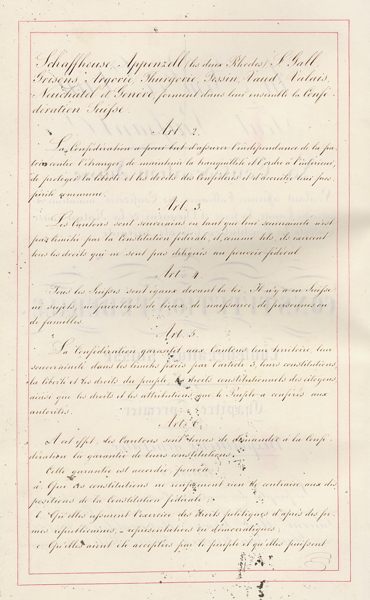 Schaffhouse, Appenzell (les deux Rhodes) St Gall,
Grisons, Argovie, Thurgovie, Tessin, Vaud, Valais,
Neuchâtel et Genève, forment dans leur ensemble la Confé-
dération Suisse.
Art. 2.
La Confédération a pour but d'assurer l'indépendance de la pa-
trie contre l'étranger, de maintenir la tranquillité et l'ordre à l'intérieur,
de protéger la liberté et les droits des Confédérés et d'accroître leur pros-
périté commune.
Art. 3
Les Cantons sont souverains en tant que leur souveraineté n'est
pas limitée par la Constitution fédérale, et, comme tels, ils exercent
tous les droits qui ne sont pas délégués au pouvoir fédéral.
Art. 4
Tous les Suisses sont égaux devant la loi. Il n'y a en Suisse
ni sujets, ni privilèges de lieux, de naissance, de personnes ou
de familles.
Art. 5.
La Confédération garantit aux Cantons leur territoire, leur
souveraineté dans les limites fixées par l'article 3, leurs constitutions,
la liberté et les droits du peuple, les droits constitutionnels des citoyens,
ainsi que les droits et les attributions que le peuple a conférés aux
autorités.
Art. 6.
A cet effet, les Cantons sont tenus de demander à la Confé-
dération la garantie de leurs constitutions.
Cette garantie est accordée, pourvu:
a Que ces constitutions ne renferment rien de contraire aux dis-
positions de la Constitution fédérale;
Qu'elles assurent l'exercice des droits politiques d'après des for-
mes républicaines, – représentatives ou démocratiques;
c Qu'elles aient été acceptées par le peuple et qu'elles puissent